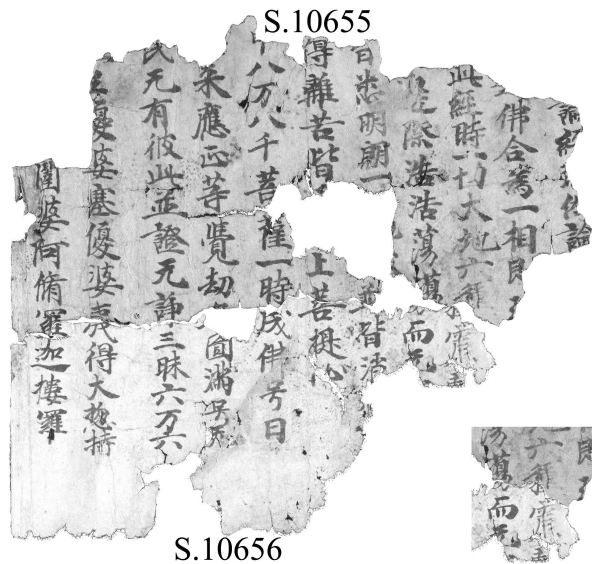 S.10655
論
佛合為一相即
此經時一切大地六種震
際浩浩蕩蕩而
皆悉明朗一皆消
得離苦皆上菩提心
八万八千菩薩一時成佛号曰
来應正等覺劫圓滿号无
民无有彼此並證无諍三昧六万六
優婆塞優婆夷得大惣持
闥婆阿脩羅迦樓羅
S.10656
即
六種震
蕩蕩而